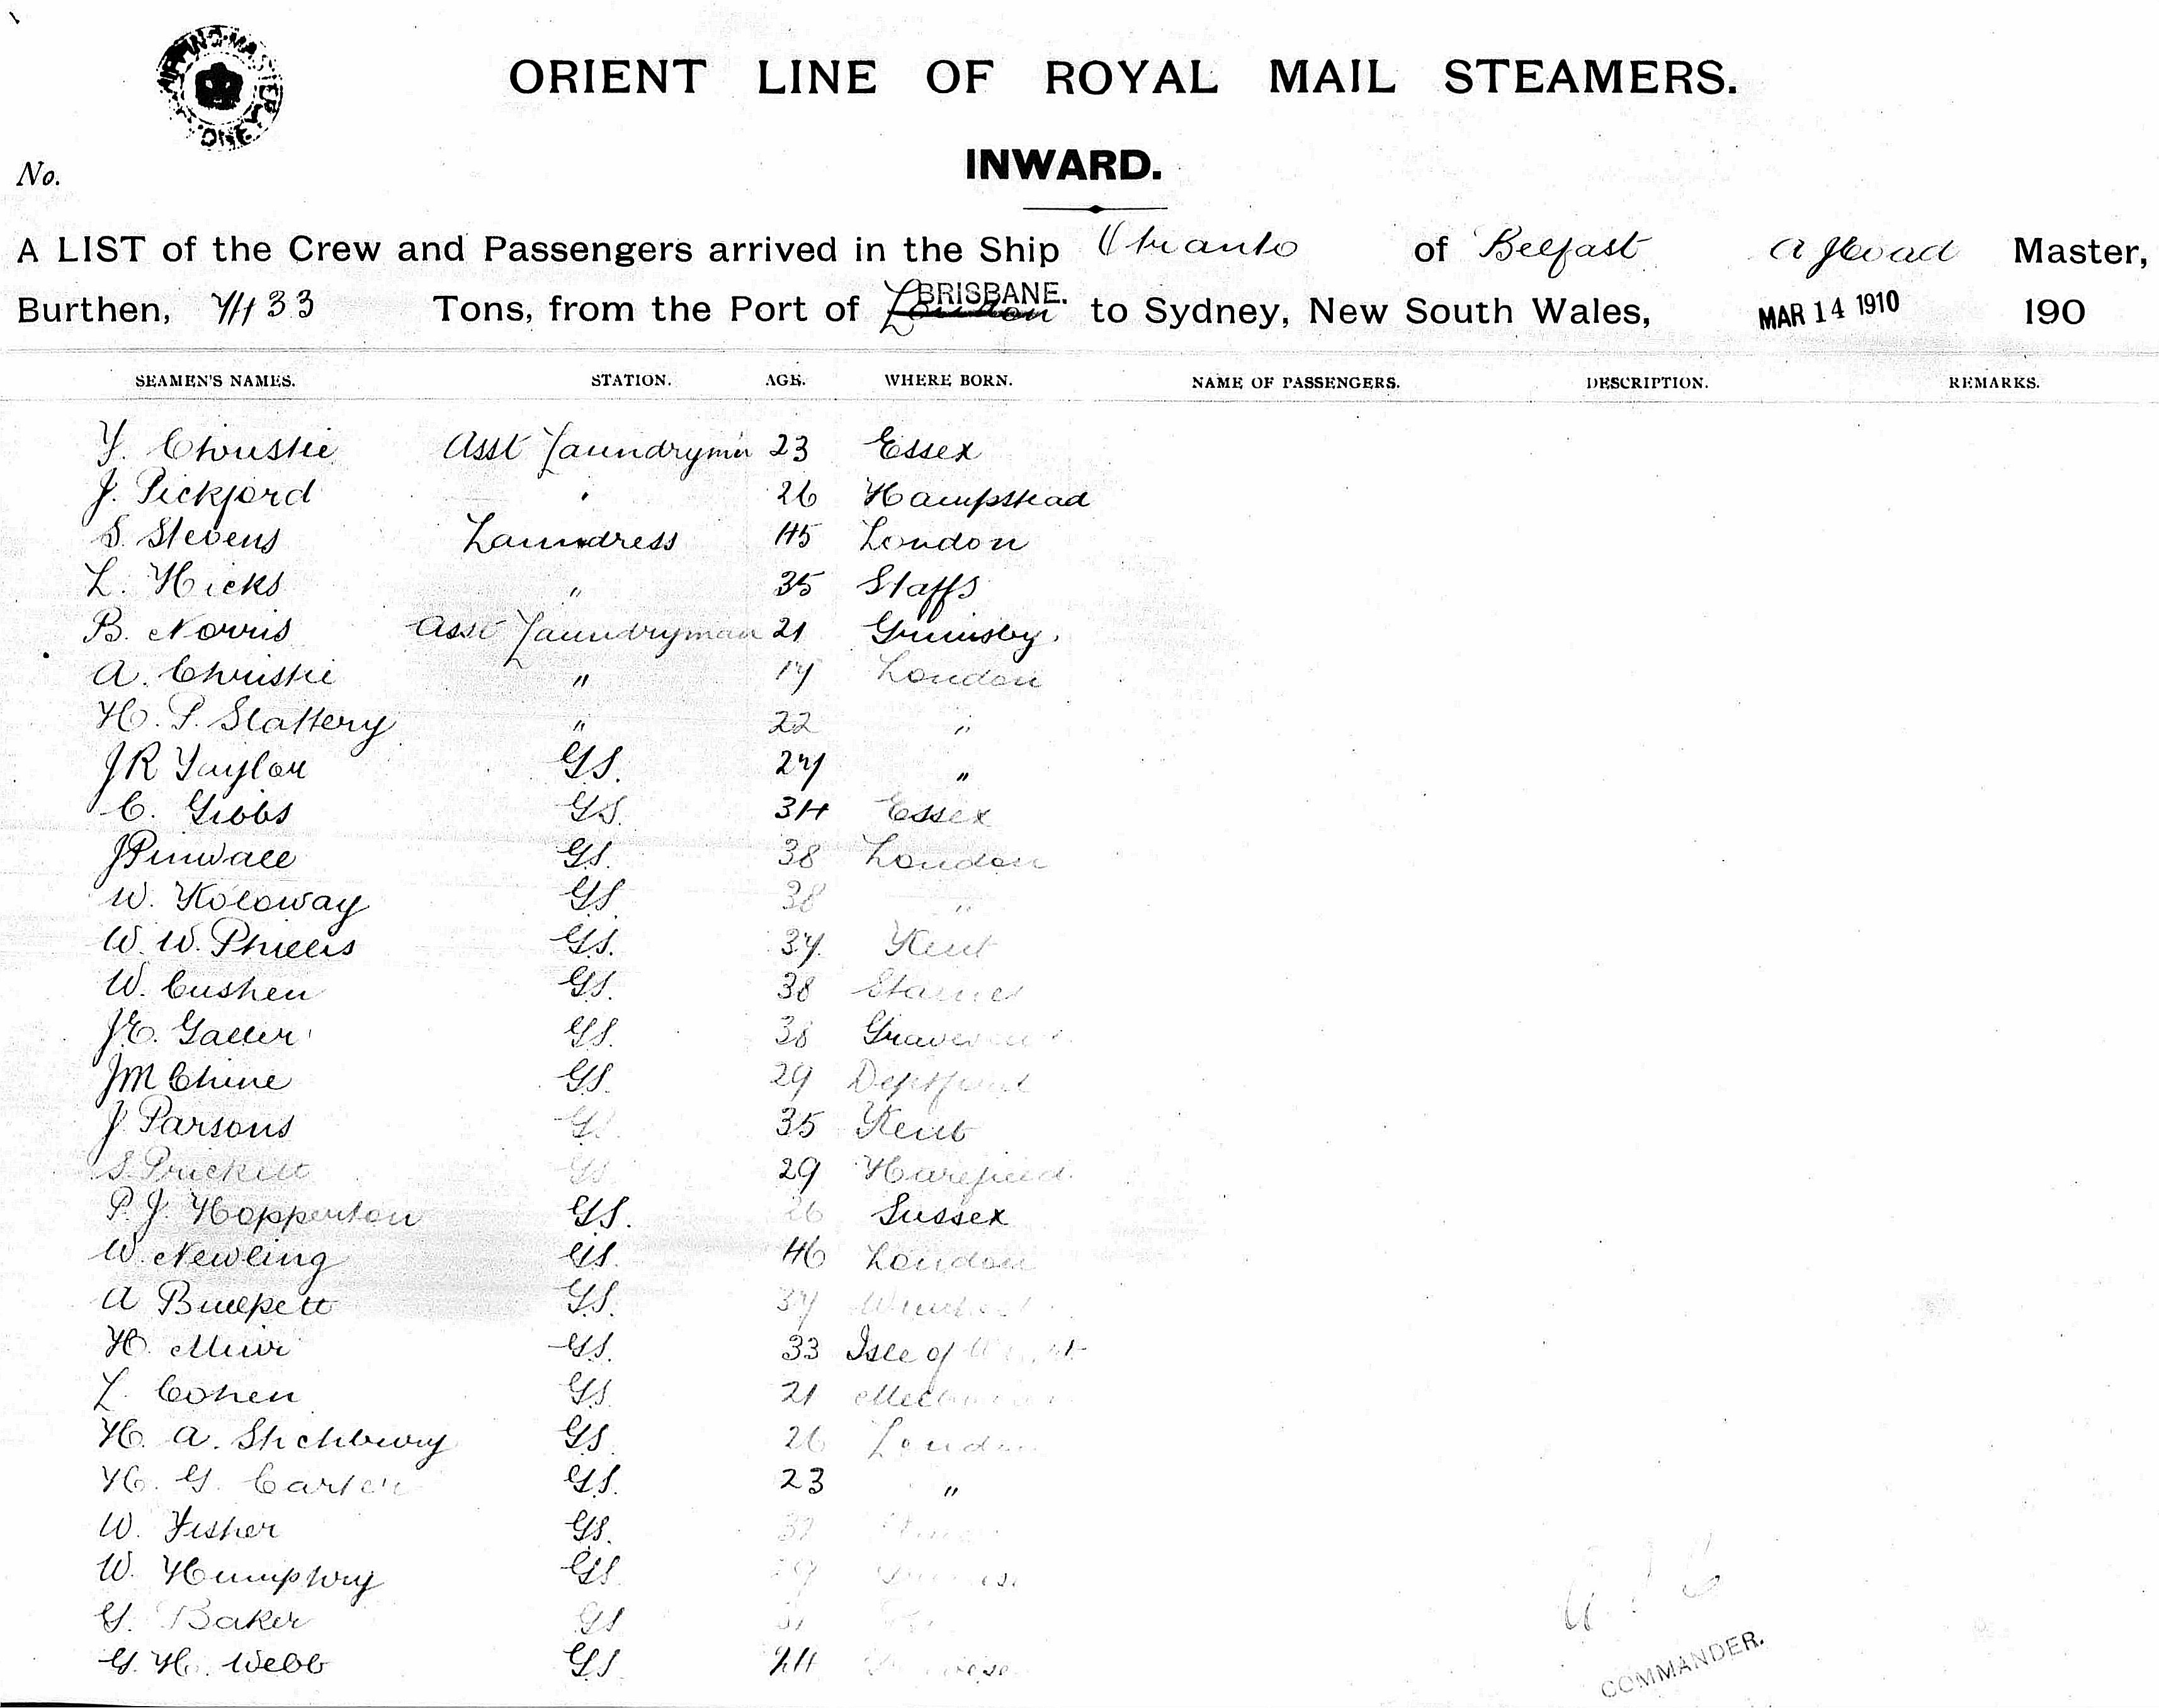 ORIENT LINE OF ROYAL MAIL STEAMERS.
INWARD.
No.
A LIST of the Crew and Passengers arrived in the Ship Otranto of Belfast A J Coad Master,
Burthen, 7433 Tons, from the Port of London BRISBANE. to Sydney, New South Wales, MAR 14 1910 190
SEAMEN'S NAMES. STATION. AGE. WHERE BORN. NAME OF PASSENGERS. DESCRIPTION. REMARKS.
Y. Christie Asst Laundryman 23 Essex
J. Pickford " 26 Hampstead
S. Stevens Laundress 45 London
L. Hicks " 35 Staffs
B. Norris Asst Laundryman 21 Grimsby.
A. Christie " 17 London
H. P. Slattery " 22 "
J R Taylor G.S. 27 "
C. Gibbs G.S. 34 Essex
J Pinwall G.S. 38 London
W. Holoway G.S 38 "
W. W. Phillis G.S. 37. Kent
W. Cushen G.S. 38 Staines
J.E. Galler G.S. 38 Gravesend
J M Chine G.S. 29 Deptford
J Parsons G.S. 35 Kent
S. Prickett G.S 29 Harefield.
P. J. Hopperton G.S. 26 Sussex
W. Newling G.S. 46 London
A Bullpett G.S. 37
H. Muir G.S. 33 Isle of Wight
L. Cohen G.S 21 Melbourne
H. A. Stichbury G.S. 26 London
H. G. Carter G.S. 23 "
W. Fisher G.S. 32
W. Humphry G.S
G. Baker G.S
G. H. Webb G.S 24
COMMANDER.